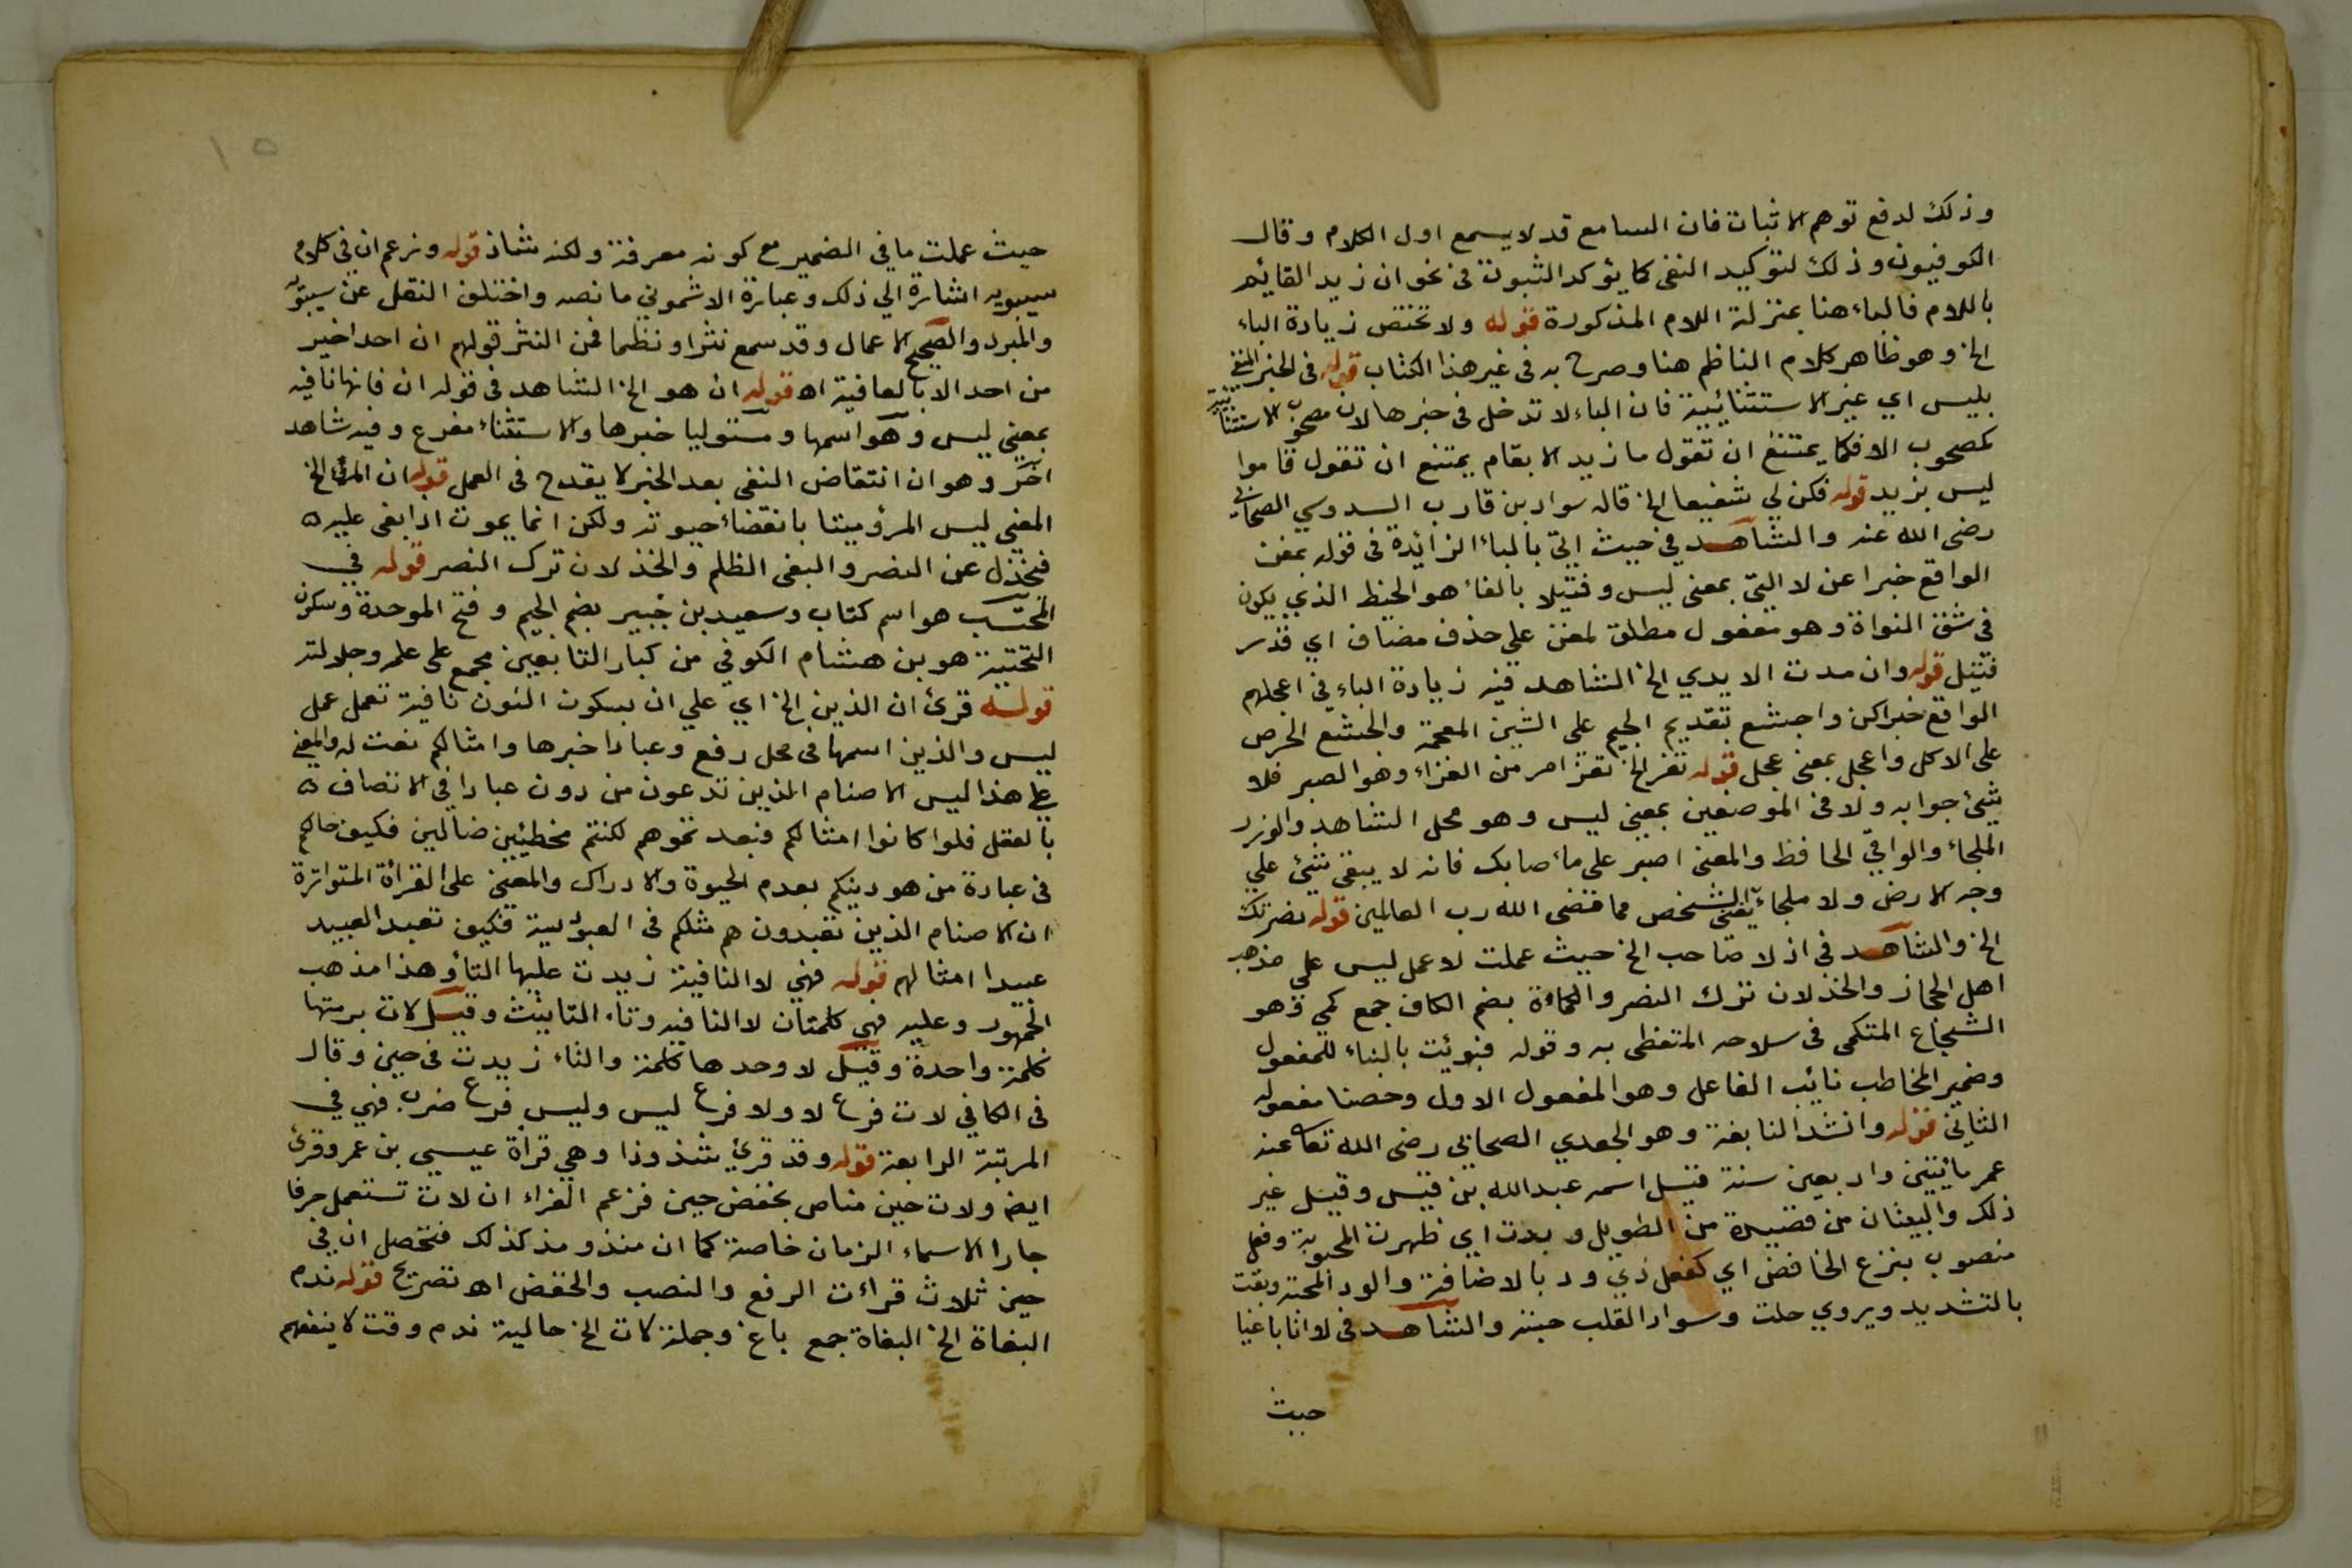 وذلك لدفع توهم الاثبات فان السامع قد لا يسمع اول الكلام وقال
الكوفيون وذلك لتوكيد النفى كما يؤكد الثبوت فى نحو ان زيد القائم
باللام فالباء هنا بمنزلة اللام المذكورة قوله ولا تختص زيادة الباء
الخ وهو ظاهر كلام الناظم هنا وصرح به فى غير هذا الكتاب قوله فى الخبر المنفى
بليس اي غير الاستثنائيية فان الباء لا تدخل فى خبرها لان مصحوب الاستثنائية
كمصحوب الا فكما يمتنع ان تقول ما زيد الا بقام يمتنع ان تقول قاموا
ليس بزيد قوله فكن لي شفيعا الخ قاله سواد بن قارب السدوسي الصحابي
رضى الله عنه والشاهد في حيث اتى بالباء الزائدة فى قوله بمغن
الواقع خبرا عن لا التى بمعنى ليس وفتيلا بالفاء هو الخيط الذي يكون
في شق النواة وهو مفعول مطلق لمغن على حذف مضاف اي قدر
فتيل قوله وان مدت الايدي الخ الشاهد فيه زيادة الباء في اعجلهم
الواقع خبر اكن واجشع بتقديم الجيم على الشين المعجمة والجشع الحرص
على الاكل واعجل بمعنى عجل قوله تعز الخ تعز امر من العزاء وهو الصبر فلا
شئ جوابه ولا فى الموضعين بمعنى ليس وهو محل الشاهد والوزر
الملجاء والواقي الحافظ والمعنى اصبر على ما اصابك فانه لا يبقى شئ على
وجه الارض ولا ملجاء يقى الشخص مما قضى الله رب العالمين قوله نصرتك
الخ والشاهد فى اذ لا صاحب الخ حيث عملت لا عمل ليس على مذهب
اهل الحجاز والخذلان ترك النصر والكماة بضم الكاف جمع كمي وهو
الشجاع المتكمى فى سلاحه المتغطى به وقوله فبوئت بالبناء للمفعول
وضمير المخاطب نائب الفاعل وهو المفعول الاول وحصنا مفعوله
الثاني قوله وانشد النابغة وهو الجعدي الصحابي رضى الله تعا عنه
عمر مأيتين واربعين سنة قيل اسمه عبدالله بن قيس وقيل غير
ذلك والبيتان من قصيدة من الطويل وبدت اي ظهرت المحبوبة وفعل
منصوب بنزع الخافض اي كفعل ذي ود بالاضافة والود المحبة وبقت
بالتشديد ويروي حلت وسواد القلب حبته والشاهد فى لا انا باغيا
حيث
١٥
حيث عملت ما في الضمير مع كونه معرفة ولكنه شاذ قوله وزعم ان فى كلام
سيبويه اشارة الي ذلك وعبارة الاشموني ما نصه واختلف النقل عن سيبويه
والمبرد والصحيح الاعمال وقد سمع نثرا ونظما فمن النثر قولهم ان احد اخير
من احد الا بالعافية اه قوله ان هو الخ الشاهد فى قوله ان فانها نافيه
بمعنى ليس وهو اسمها ومستوليا خبرها والاستثناء مفرع وفيه شاهد
آخر وهو ان انتقاض النفى بعد الخبر لا يقدح فى العمل قوله ان المرء الخ
المعنى ليس المرؤ ميتا بانقضاء حيوته ولكن انما يموت اذا بغى عليه
فيخذل عن النصر والبغى الظلم والخذلان ترك النصر قوله في
المحتسب هو اسم كتاب وسعيد بن جبير بضم الجيم وفتح الموحدة وسكون
التحتية هو بن هشام الكوفي من كبار التابعين مجمع على علمه وجلالته
قوله قرئ ان الذين الخ اي على ان بسكون النون نافية تعمل عمل
ليس والذين اسمها فى محل رفع وعبادا خبرها وامثالكم نعت له والمعنى
على هذا ليس الاصنام الذين تدعون من دون عبادا في الاتصاف
بالعقل فلوا كانوا امثالكم فبعد تموهم لكنتم مخطئين ضالين فكيف حالكم
فى عبادة من هو دينكم بعدم الحيوة والادراك والمعنى على القرأة المتواترة
ان الاصنام الذين تعبدون هم مثلكم فى العبودية فكيف تعبد العبيد
عبيدا امثالهم قوله فهي لا النافية زيدت عليها التاؤ هذا مذهب
الجمهور وعليه فهي كلمتان لا النافيه وتاء التانيث وقيل لات برمتها
كلمة واحدة وقيل لا وحدها كلمة والتاء زيدت فى حين وقال
فى الكافي لات فرع لا ولا فرع ليس وليس فرع ضرب فهي في
المرتبة الرابعة قوله وقد قرئ شذوذا وهي قرأة عيسي بن عمر وقرئ
ايضه ولات حين مناص بخفض حين فزعم الفراء ان لات تستعمل حرفا
جارا الاسماء الزمان خاصة كما ان منذ ومذ كذلك فتحصل ان في
حين ثلاث قراءت الرفع والنصب والخفض اه تصريح قوله ندم
البغاة الخ البغاة جمع باغ وجملة لات الخ حالية ندم وقت لا ينفعهم